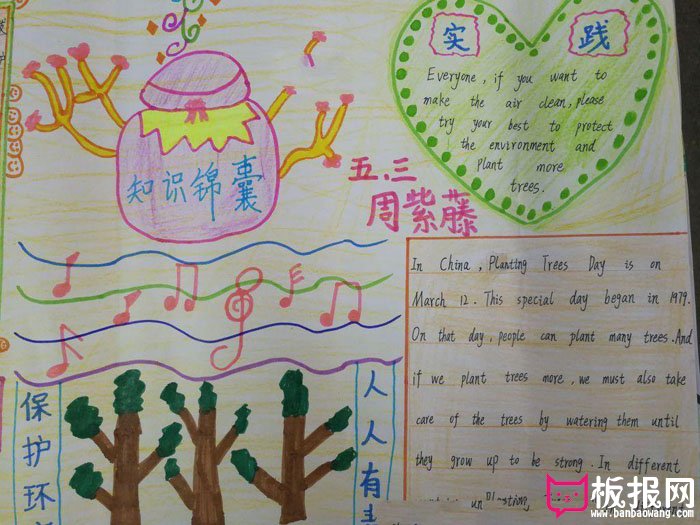 实 践
Everyone, if you want to
make the air clean, please
try your best to protect
the environment and
plant more
trees.
知识锦囊
五.三
周紫藤
In China, Planting Trees Day is on
March 12. This special day began in 1979.
On that day, people can plant many trees. And
if we plant trees more, we must also take
care of the trees by watering them until
they grow up to be strong. In different
保护环
人人有
板报网
www.banbaowang.com